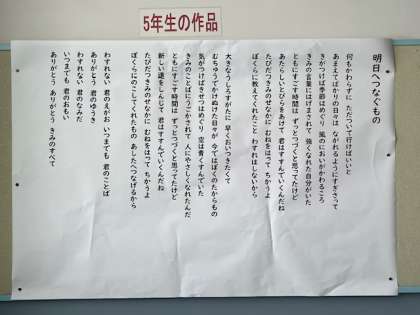 5年生の作品
明日へつなぐもの
何もかわらずに ただついて行けばいいと
あまえてばかりの日々は ながれるようにすぎさって
きがつけば季節はめぐり 風のにおいがかわるころ
きみの言葉にはげまされて 強くなれた自分がいた
ともにすごす時間は ずっとつづくと思ってたけど
あたらしいとびらをあけて 君はすすんでいくんだね
たびだつきみのせなかに むねをはって ちかうよ
ぼくらに教えてくれたこと わすれはしないから
大きなうしろすがたに 早くおいつきたくて
むちゅうでかけぬけた日々が 今ではぼくのたからもの
気がつけばきせつはめぐり 空は青くすんでいた
きみのことばにうごかされて 人にやさしくなれたんだ
ともにすごす時間は ずっとつづくと思ってたけど
新しい道をしんじて 君はすすんでいくんだね
たびだつきみのせなかに むねをはって ちかうよ
ぼくらにのこしてくれたもの あしたへつなげるから
わすれない 君のえがお いつまでも 君のことば
ありがとう 君のゆうき
わすれない 君のなみだ
いつまでも 君のおもい
ありがとう ありがとう きみのすべて